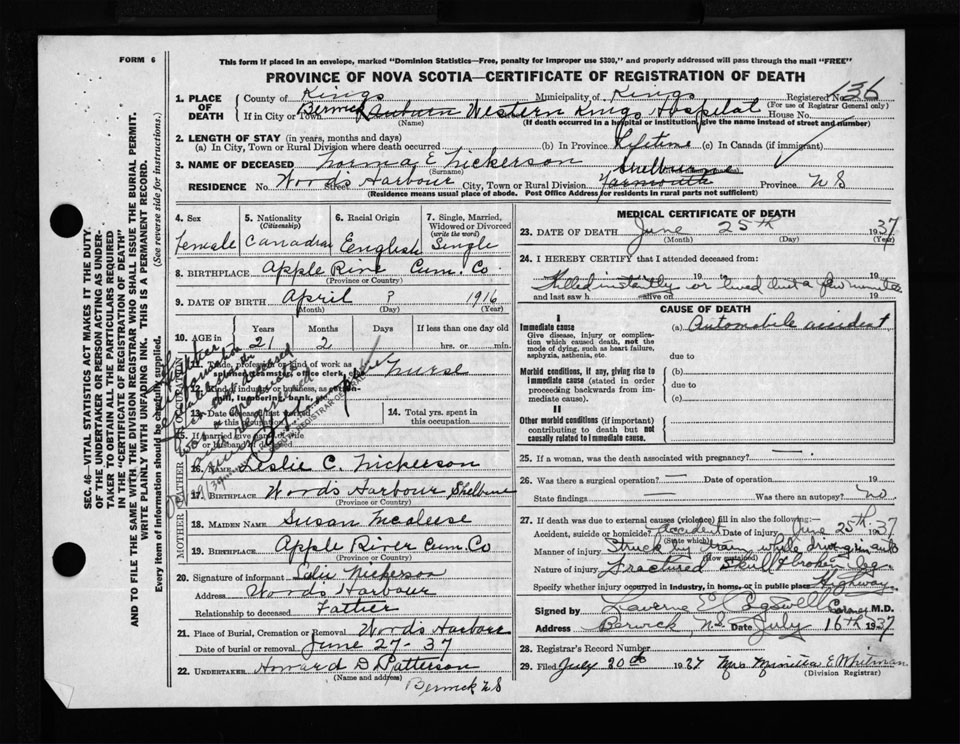 FORM 6
This form if placed in an envelope, marked "Dominion Statistics—Free, penalty for improper use $300," and properly addressed will pass through the mail "FREE"
PROVINCE OF NOVA SCOTIA—CERTIFICATE OF REGISTRATION OF DEATH
1. PLACE OF DEATH
County of Kings Municipality of Kings Registered No. 136
(For use of Registrar General only)
If in City or Town Berwick Western Kings Hospital House No.
(Name) (If death occurred in a hospital or institution, give the name instead of street and number)
2. LENGTH OF STAY (in years, months and days)
(a) In City, Town or Rural Division where death occurred (b) In Province Lifetime (c) In Canada (if immigrant)
3. NAME OF DECEASED Norma E Nickerson
(Surname)
Shelburne
RESIDENCE No. Woods Harbour Street City, Town or Rural Division Yarmouth Province N S
(Residence means usual place of abode. Post Office Address for residents in rural parts not sufficient)
4. Sex Female
5. Nationality (Citizenship) Canadian
6. Racial Origin English
7. Single, Married, Widowed or Divorced (write the word) Single
8. BIRTHPLACE Apple River Cum. Co.
(Province or Country)
9. DATE OF BIRTH April ? 1916
(Month) (Day) (Year)
10. AGE in Years 21 Months 2 Days If less than one day old hrs. or min.
11. Trade, profession or kind of work as Nurse
12. Kind of industry or business, as
13. Date deceased last worked at this occupation
14. Total yrs. spent in this occupation
15. If married give name of wife or husband of deceased
FATHER
16. Name Leslie C. Nickerson
17. BIRTHPLACE Woods Harbour Shelburne
MOTHER
18. MAIDEN NAME Susan McAleese
19. BIRTHPLACE Apple River Cum. Co
(Province or Country)
20. Signature of informant Nickerson
Address Woods Harbour
Relationship to deceased Father
21. Place of Burial, Cremation or Removal Woods Harbour
Date of burial or removal June 27-37
22. UNDERTAKER Howard D Patterson
(Name and address)
Berwick N S
MEDICAL CERTIFICATE OF DEATH
23. DATE OF DEATH June 25th 1937
(Month) (Day) (Year)
24. I HEREBY CERTIFY that I attended deceased from:
Killed instantly or lived but a few minutes
and last saw h alive on 19
CAUSE OF DEATH
I
Immediate cause (a) Automobile accident
Give disease, injury or complication which caused death, not the mode of dying, such as heart failure, asphyxia, asthenia, etc.
due to
Morbid conditions, if any, giving rise to immediate cause (stated in order proceeding backwards from immediate cause).
(b)
due to
(c)
II
Other morbid conditions (if important) contributing to death but not causally related to immediate cause.
25. If a woman, was the death associated with pregnancy? —
26. Was there a surgical operation? — Date of operation 19
State findings — Was there an autopsy? no
27. If death was due to external causes (violence) fill in also the following:—
Accident, suicide or homicide? Accident Date of injury June 25th 1937
(State which)
Manner of injury Struck by train while driving in auto
(How sustained)
Nature of injury Fractured Skull & broken leg
Specify whether injury occurred in industry, in home, or in public place Highway
Signed by Laverne E Cogswell Coroner M.D.
Address Berwick, N.S. Date July 16th 1937
28. Registrar's Record Number
29. Filed July 20th 1937 Mrs E Whitman
(Division Registrar)
SEC. 46—VITAL STATISTICS ACT MAKES IT THE DUTY OF THE UNDERTAKER OR PERSON ACTING AS UNDERTAKER TO OBTAIN ALL THE PARTICULARS REQUIRED IN THE "CERTIFICATE OF REGISTRATION OF DEATH" AND TO FILE THE SAME WITH THE DIVISION REGISTRAR WHO SHALL ISSUE THE BURIAL PERMIT.
WRITE PLAINLY WITH UNFADING INK. THIS IS A PERMANENT RECORD.
Every item of Information should be carefully supplied. (See reverse side for instructions.)